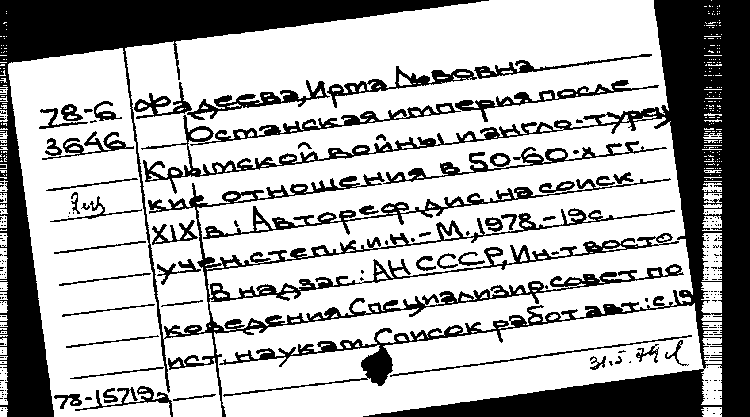 78-6 Фадеева, Ирма Львовна.
3646 Османская империя после
Крымской войны и англо-турец
кие отношения в 50-60-х гг.
XIX в.: Автореф. дис. на соиск.
учен. степ. к.и.н. - М., 1978. - 19 с.
В надзаг.: АН СССР, Ин-т восто-
коведения. Специализир. совет по
ист. наукам. Список работ авт.: с. 19
78-15719а 31.5.79